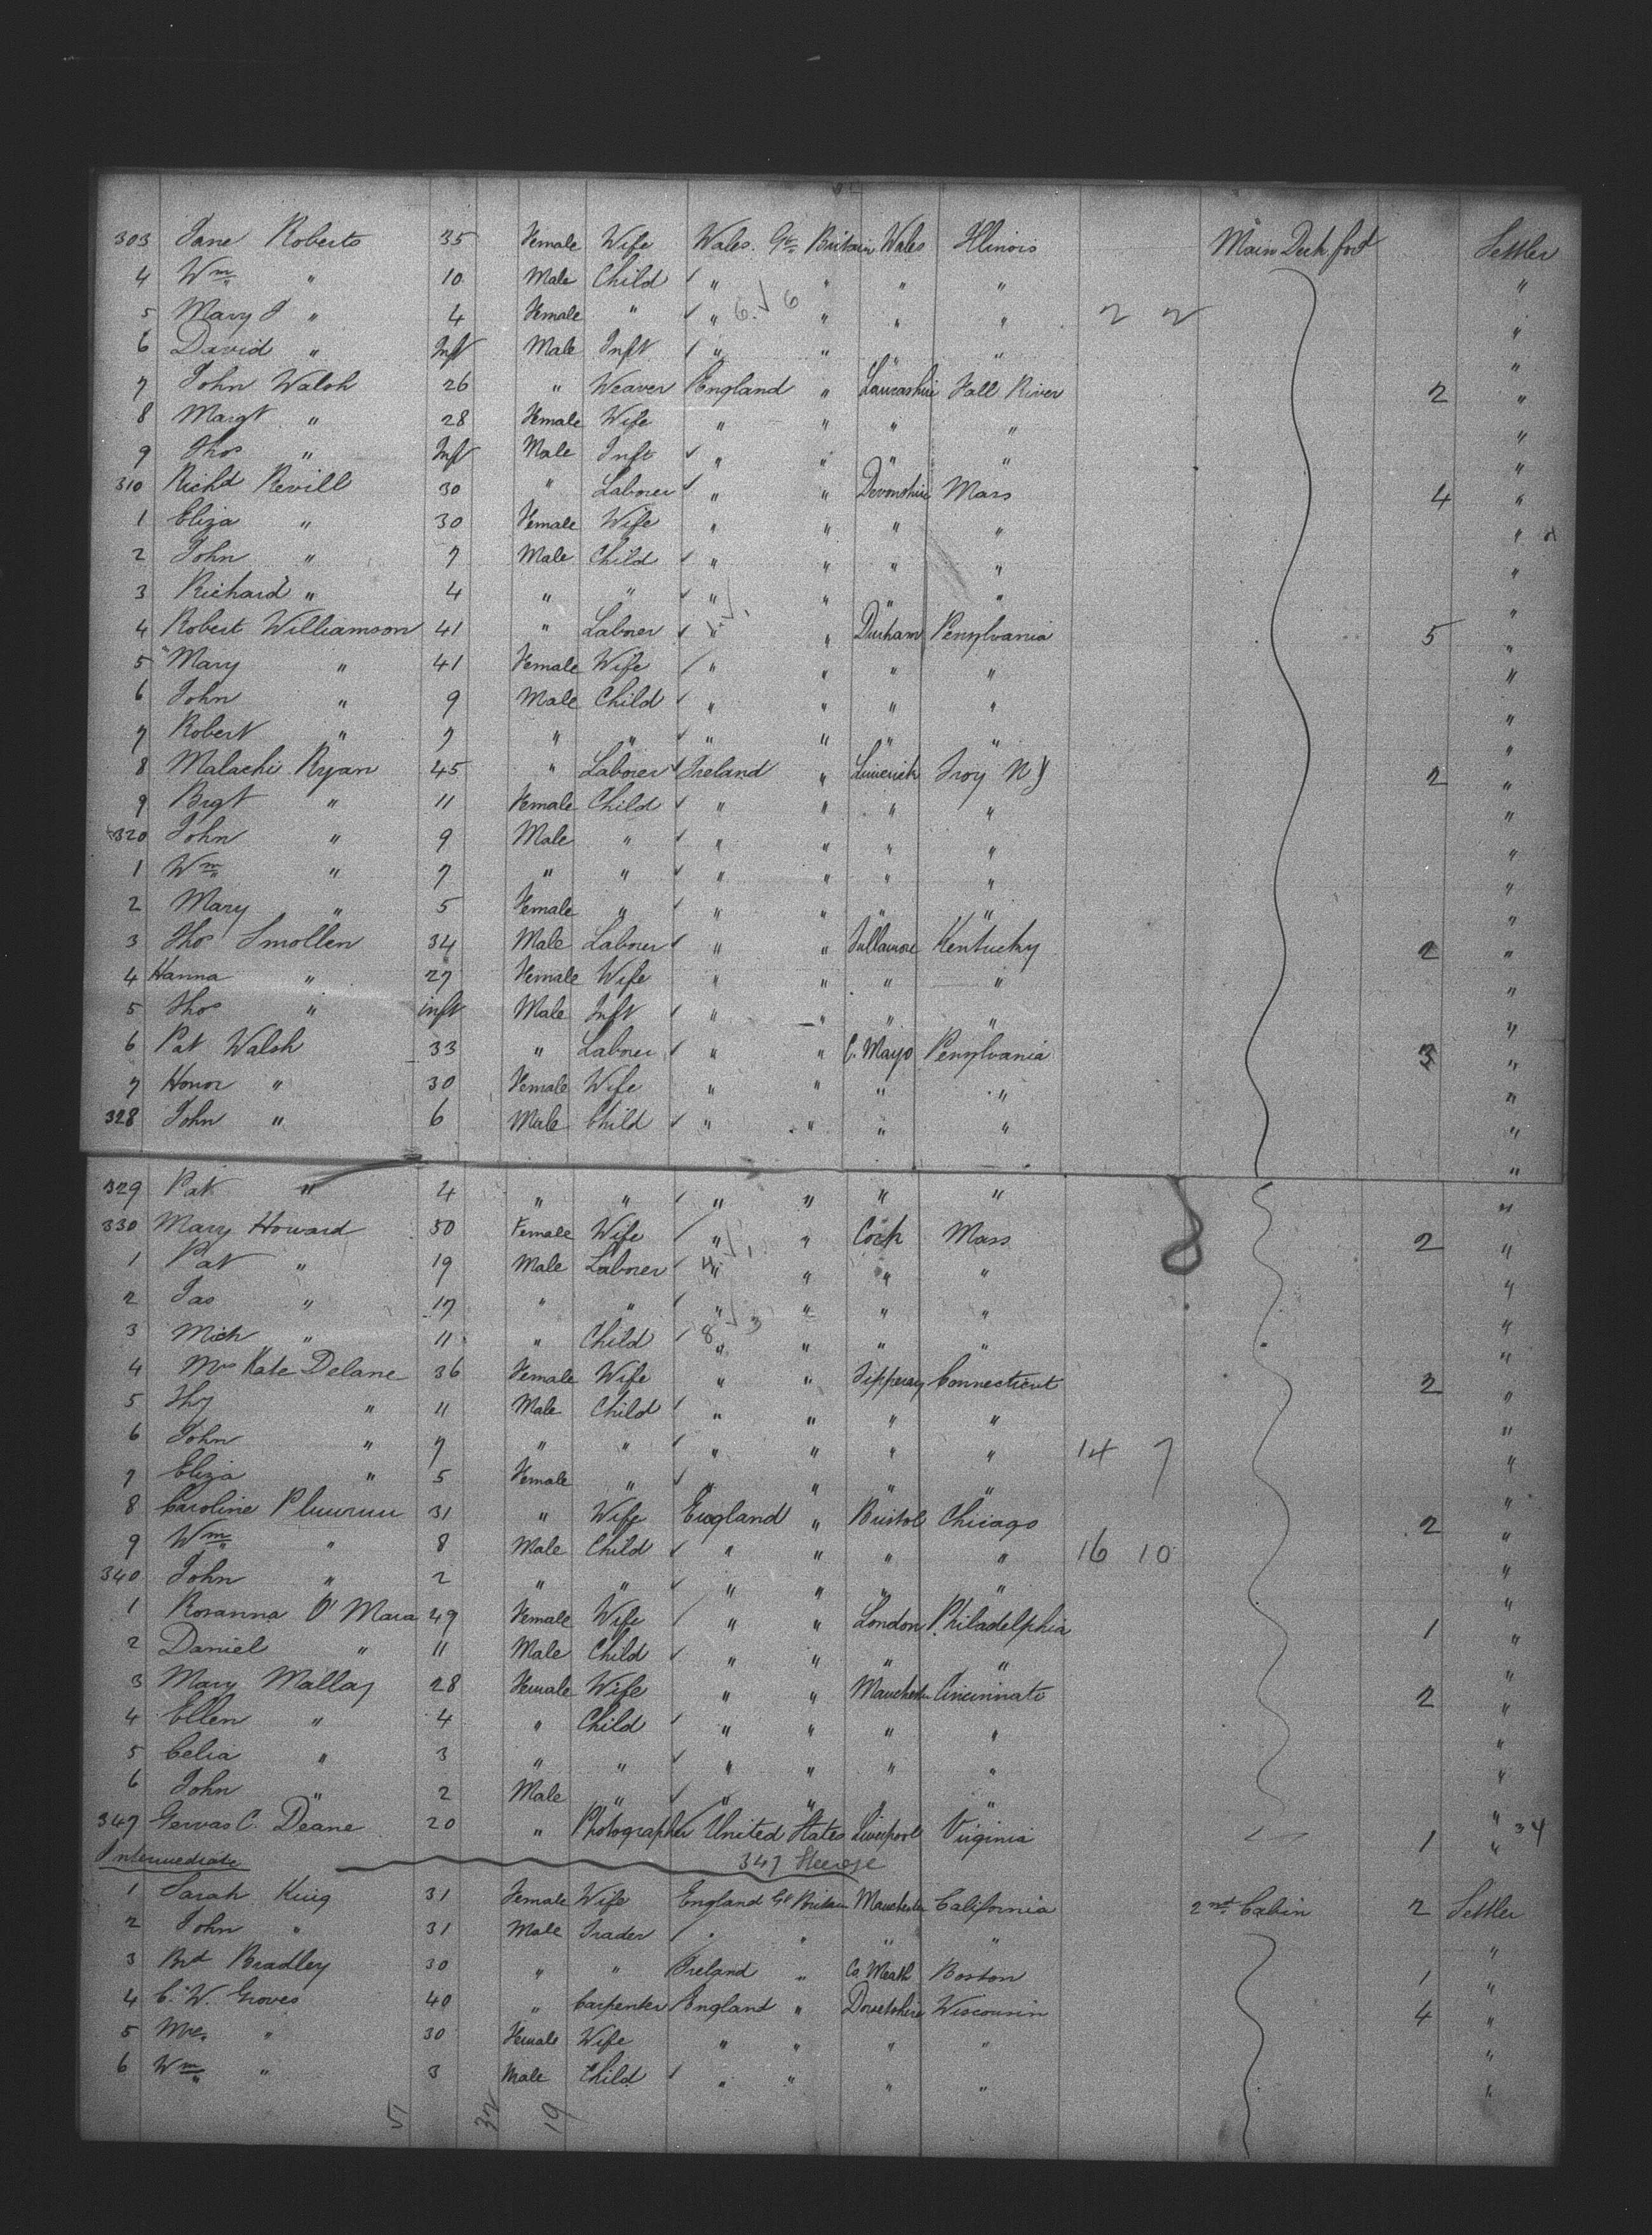 303 Jane Roberts 35 Female Wife Wales. Gt Britain Wales Illinois Main Deck for'd Settler
4 Wm " 10 Male Child " " " " "
5 Mary J " 4 Female " " 6 6 " " " 2 2 "
6 David " Inft Male Inft " " " " "
7 John Walsh 26 " Weaver England " Lancashire Fall River 2 "
8 Margt " 28 Female Wife " " " " "
9 Thos " Inft Male Inft " " " " "
310 Richd Revill 30 " Laborer " " Devonshire Mass 4 "
1 Eliza " 30 Female Wife " " " " "
2 John " 7 Male Child " " " " "
3 Richard " 4 " " " " " " "
4 Robert Williamson 41 " Laborer " " Durham Pensylvania 5 "
5 Mary " 41 Female Wife " " " " "
6 John " 9 Male Child " " " " "
7 Robert " 7 " " " " " " "
8 Malachi Ryan 45 " Laborer Ireland " Limerick Troy N Y 2 "
9 Brgt " 11 Female Child " " " " "
320 John " 9 Male " " " " " "
1 Wm " 7 " " " " " " "
2 Mary " 5 Female " " " " " "
3 Thos Smollen 34 Male Laborer " " Kentucky 2 "
4 Hanna " 27 Female Wife " " " " "
5 Thos " inft Male Inft " " " " "
6 Pat Walsh 33 " Laborer " " C. Mayo Pensylvania 3 "
7 Honor " 30 Female Wife " " " " "
328 John " 6 Male Child " " " " "
329 Pat " 4 " " " " " " "
330 Mary Howard 50 Female Wife " " Cork Mass 2 "
1 Pat " 19 Male Laborer " " " " "
2 Jas " 17 " " " " " " "
3 Mich " 11 " Child 8 3 " " " " "
4 Mrs Kate Delane 36 Female Wife " " Tipperay Connecticut 2 "
5 Thy " 11 Male Child " " " " "
6 John " 7 " " " " " " 14 7 "
7 Eliza " 5 Female " " " " " "
8 Caroline 31 " Wife England " Bristol Chicago 2 "
9 Wm " 8 Male Child " " " " 16 10 "
340 John " 2 " " " " " " "
1 Rosanna O'Mara 49 Female Wife " " London Philadelphia 1 "
2 Daniel " 11 Male Child " " " " "
3 Mary Mallay 28 Female Wife " " Manchester Cincinnati 2 "
4 Ellen " 4 " Child " " " " "
5 Celia " 3 " " " " " " "
6 John " 2 Male " " " " " "
347 Gervas C. Deane 20 " Photographer United States Liverpool Virginia 1 " 34
Intermediate 347 Steerage
1 Sarah King 31 Female Wife England Gt Britain Manchester California 2nd Cabin 2 Settler
2 John " 31 Male Trader " " " " "
3 Brd Bradley 30 " " Ireland " Co Meath Boston 1 "
4 C. W. Groves 40 " Carpenter England " Dorsetshire Wisconsin 4 "
5 Mrs. " 30 Female Wife " " " " "
6 Wm " 3 Male Child " " " " "
51 32 19